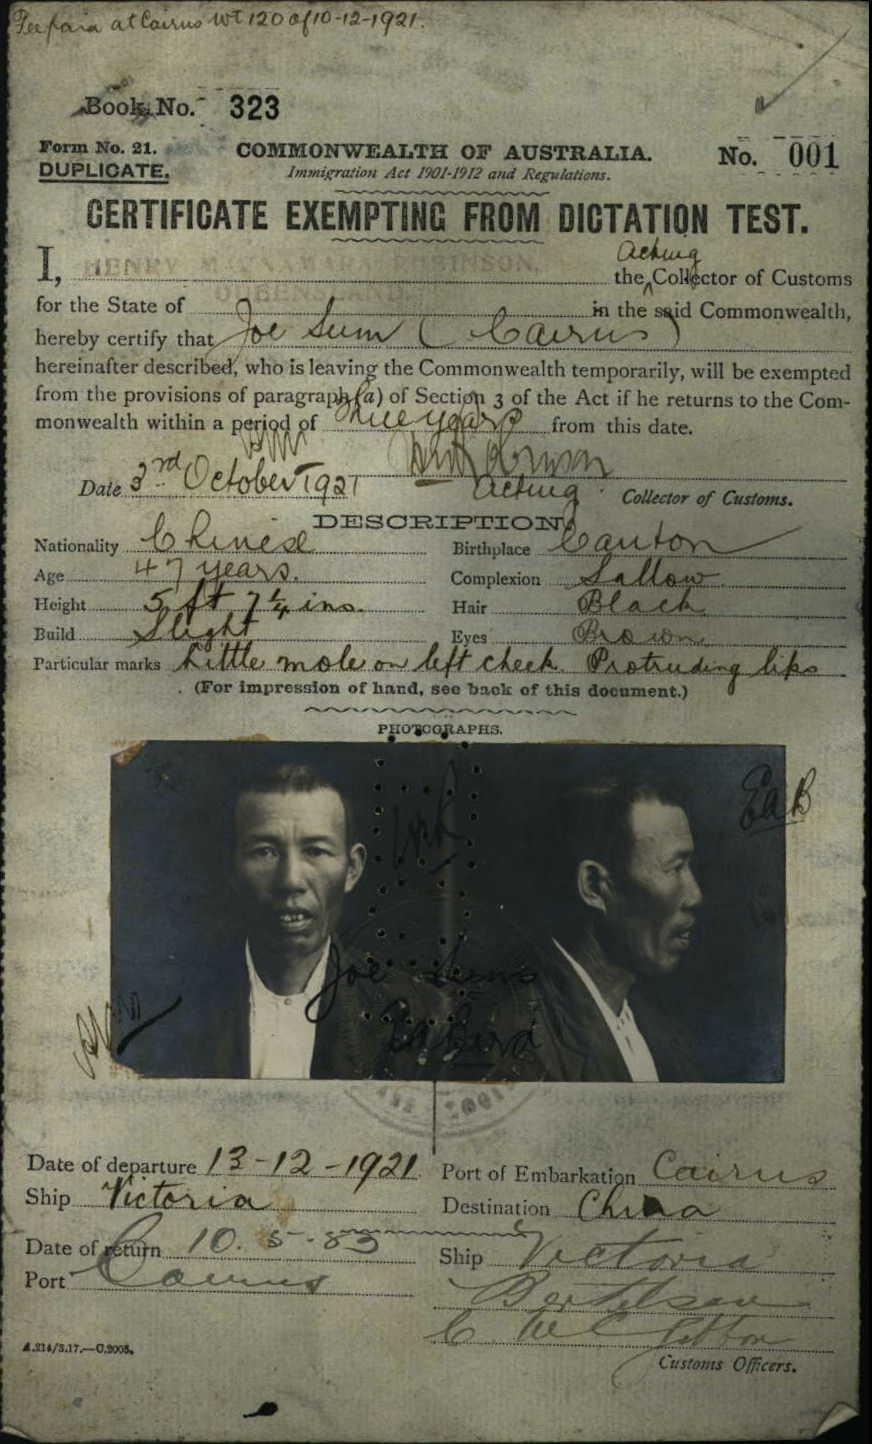 at Cairns Wt 120 of 10-12-1921.
Book No. 323
Form No. 21.
DUPLICATE.
COMMONWEALTH OF AUSTRALIA.
Immigration Act 1901-1912 and Regulations.
No. 001
CERTIFICATE EXEMPTING FROM DICTATION TEST.
Acting
I, HENRY ROBINSON, the Collector of Customs
for the State of QUEENSLAND in the said Commonwealth,
hereby certify that Joe Sum (Cairns)
hereinafter described, who is leaving the Commonwealth temporarily, will be exempted
from the provisions of paragraph (a) of Section 3 of the Act if he returns to the Com-
monwealth within a period of years from this date.
Date 3rd October 1921
Acting Collector of Customs.
DESCRIPTION
Nationality Chinese
Birthplace Canton
Age 47 years.
Complexion Sallow
Height 5 ft 7¼ ins.
Hair Black
Build Slight
Eyes Brown
Particular marks Little mole on left cheek. Protruding lips
(For impression of hand, see back of this document.)
PHOTOGRAPHS.
Joe Sum
Date of departure 13-12-1921
Port of Embarkation Cairns
Ship Victoria
Destination China
Date of return 10.5.
Ship Victoria
Port Cairns
Customs Officers.